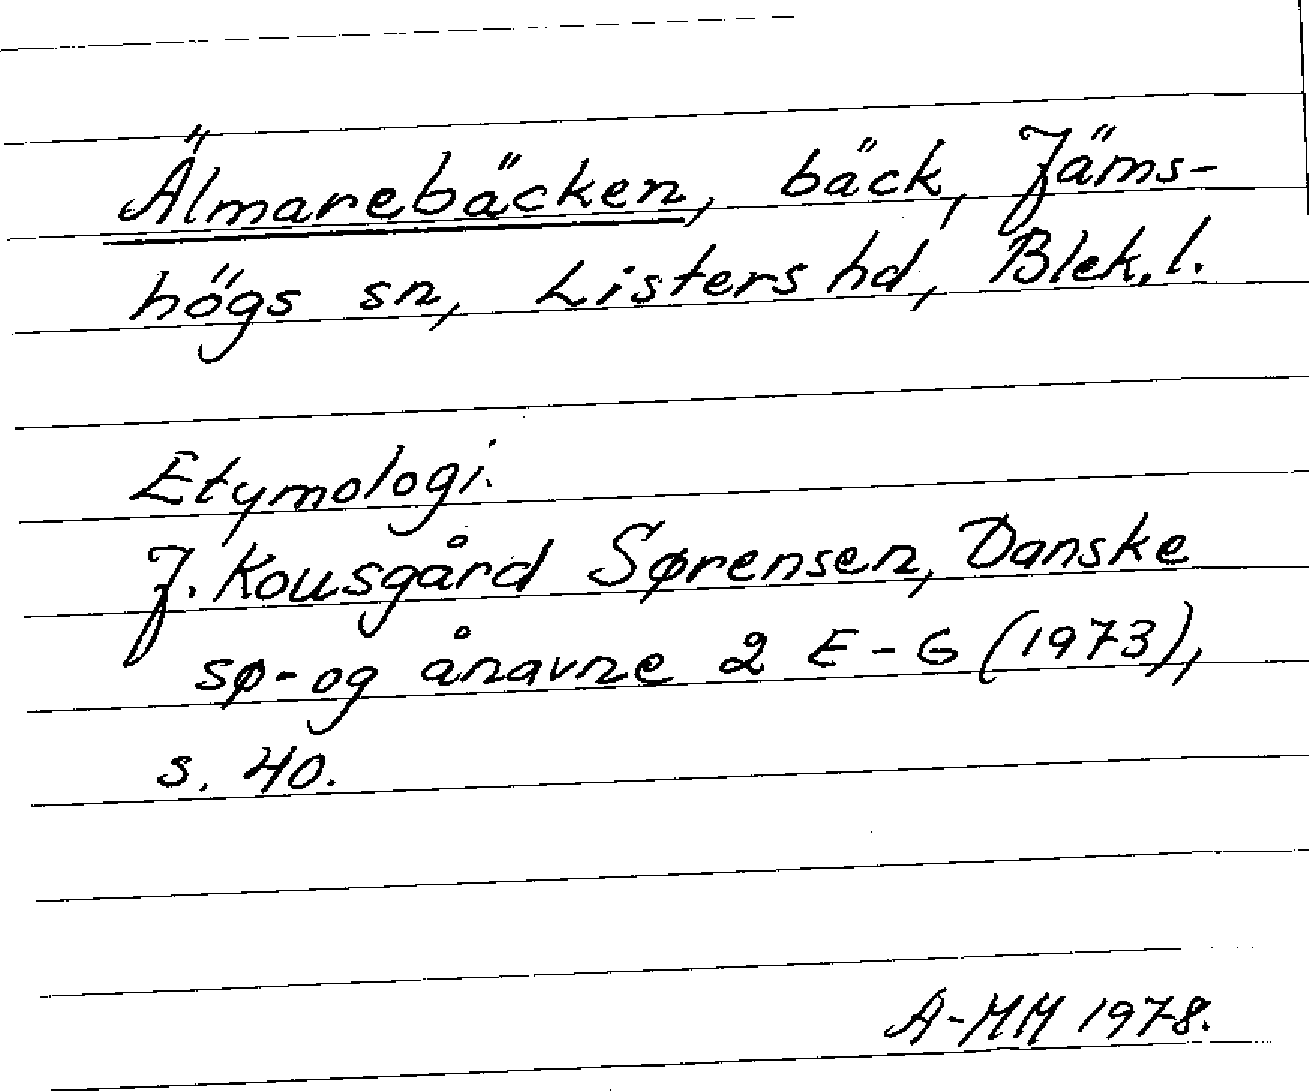 Älmarebäcken, bäck, Jäms-
högs sn, Listers hd, Blek. l.
Etymologi.
J. Kousgård Sørensen, Danske
sø- og ånavne 2 E-G (1973),
s. 40.
A-MM 1978.